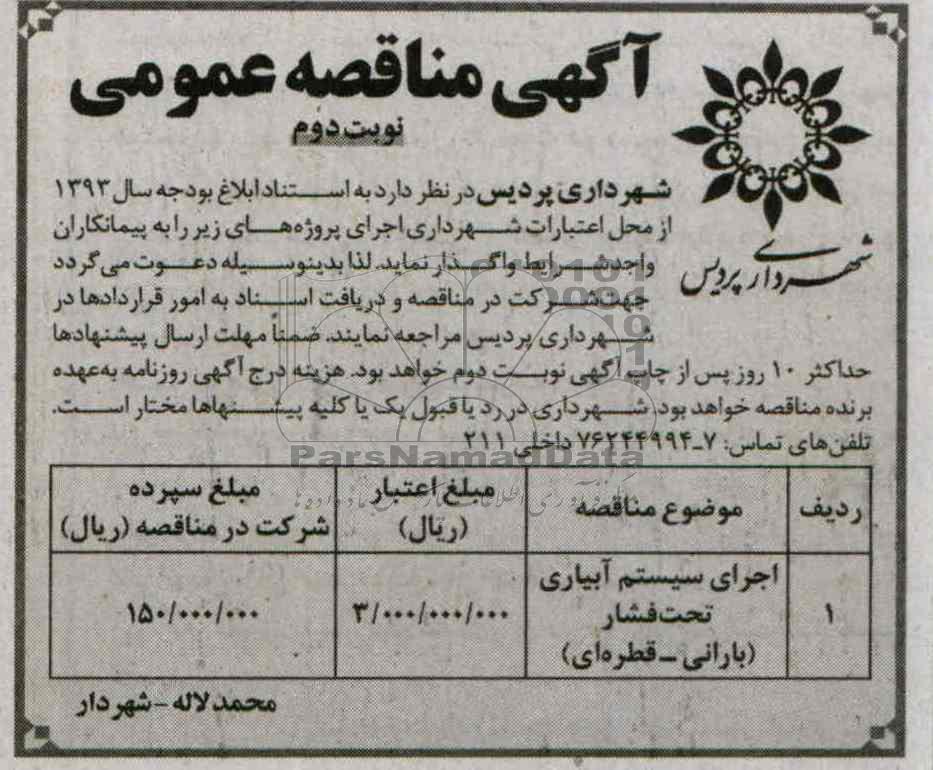 آگهی مناقصه عمومی
نوبت دوم
شهرداری پردیس
شهرداری پردیس در نظر دارد به استناد ابلاغ بودجه سال ۱۳۹۳
از محل اعتبارات شهرداری اجرای پروژه‌های زیر را به پیمانکاران
واجد شرایط واگذار نماید. لذا بدینوسیله دعوت می‌گردد
جهت شرکت در مناقصه و دریافت اسناد به امور قراردادها در
شهرداری پردیس مراجعه نمایند. ضمناً مهلت ارسال پیشنهادها
حداکثر ۱۰ روز پس از چاپ آگهی نوبت دوم خواهد بود. هزینه درج آگهی روزنامه به‌عهده
برنده مناقصه خواهد بود. شهرداری در رد یا قبول یک یا کلیه پیشنهاها مختار است.
تلفن‌های تماس: ۷-۷۶۲۴۴۹۹۴ داخلی ۲۱۱
ParsNamadData
ردیف موضوع مناقصه مبلغ اعتبار (ریال) مبلغ سپرده شرکت در مناقصه (ریال)
۱ اجرای سیستم آبیاری تحت‌فشار (بارانی - قطره‌ای) ۳/۰۰۰/۰۰۰/۰۰۰ ۱۵۰/۰۰۰/۰۰۰
محمد لاله - شهردار